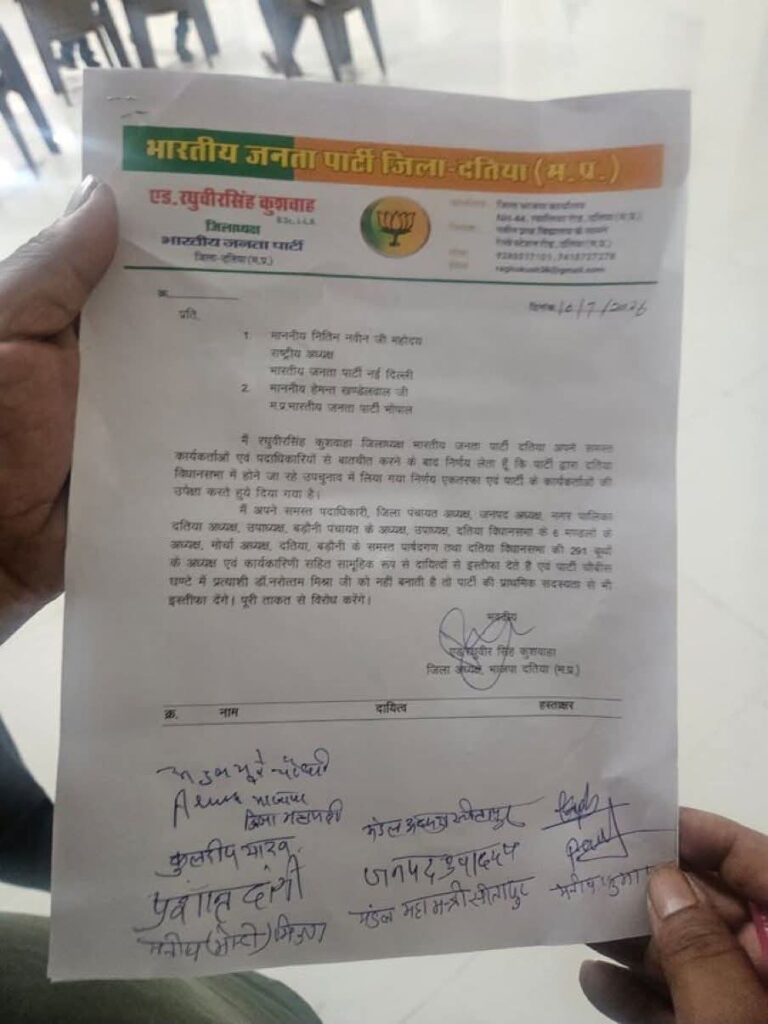 भारतीय जनता पार्टी जिला-दतिया (म.प्र.)
एड. रघुवीरसिंह कुशवाह
B.Sc., L.L.B.
जिलाध्यक्ष
भारतीय जनता पार्टी
जिला-दतिया (म.प्र.)
जिला भाजपा कार्यालय
NH-44, ग्वालियर रोड, दतिया (म.प्र.)
रेल्वे स्टेशन रोड, दतिया (म.प्र.)
क्र.
दिनांक 10/7/2026
प्रति,
1. माननीय नितिन नवीन जी महोदय
राष्ट्रीय अध्यक्ष
भारतीय जनता पार्टी नई दिल्ली
2. माननीय हेमन्त खण्डेलवाल जी
म.प्र.भारतीय जनता पार्टी भोपाल
मैं रघुवीरसिंह कुशवाहा जिलाध्यक्ष भारतीय जनता पार्टी दतिया अपने समस्त
कार्यकर्ताओं एवं पदाधिकारियों से बातचीत करने के बाद निर्णय लेता हूँ कि पार्टी द्वारा दतिया
विधानसभा में होने जा रहे उपचुनाव में लिया गया निर्णय एकतरफा एवं पार्टी के कार्यकर्ताओं की
उपेक्षा करते हुये दिया गया है।
मैं अपने समस्त पदाधिकारी, जिला पंचायत अध्यक्ष, जनपद अध्यक्ष, नगर पालिका
दतिया अध्यक्ष, उपाध्यक्ष, बड़ौनी पंचायत के अध्यक्ष, उपाध्यक्ष, दतिया विधानसभा के 6 मण्डलों के
अध्यक्ष, मोर्चा अध्यक्ष, दतिया, बड़ौनी के समस्त पार्षदगण तथा दतिया विधानसभा की 291 बूथों
के अध्यक्ष एवं कार्यकारिणी सहित सामूहिक रूप से दायित्वों से इस्तीफा देते है एवं पार्टी चौबीस
घण्टे में प्रत्याशी डॉ.नरोत्तम मिश्रा जी को नहीं बनाती है तो पार्टी की प्राथमिक सदस्यता से भी
इस्तीफा देंगे। पूरी ताकत से विरोध करेंगे।
भवदीय
एड.रघुवीर सिंह कुशवाहा
जिला अध्यक्ष, भाजपा दतिया (म.प्र.)
क्र. नाम दायित्व हस्ताक्षर
मंडल अध्यक्ष सीतापुर
कुलदीप यादव
जनपद
प्रशांत दांगी
मंडल महामन्त्री सीतापुर
मनीष